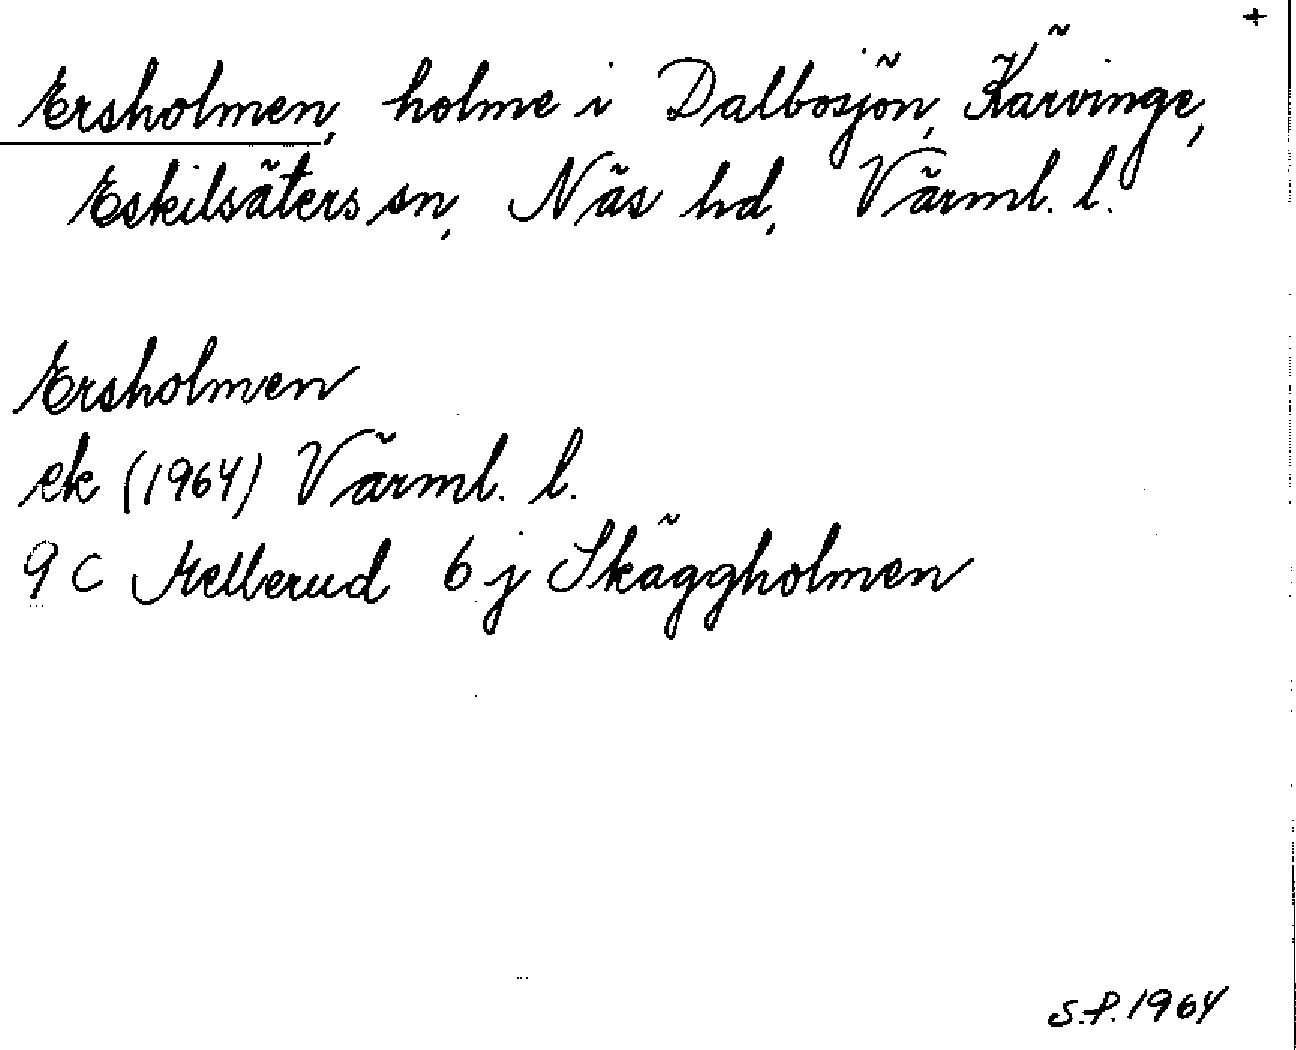 +
Ersholmen, holme i Dalbosjön, Kärvinge,
Eskilsäters sn, Näs hd, Värml. l.
Ersholmen
ek (1964) Värml. l.
9 C Mellerud 6 j Skäggholmen
S.P. 1964